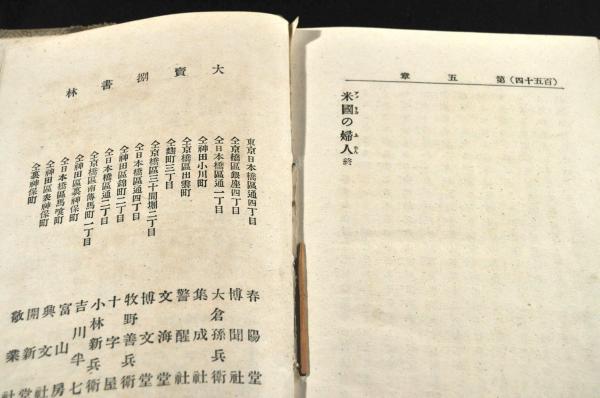 (百五十四)第五章
米國の婦人 終
大賣捌書林
東京日本橋區通四丁目 春陽堂
仝京橋區銀座四丁目 博聞社
仝日本橋區通一丁目 大倉孫兵衛
仝神田小川町 集成社
仝京橋區出雲町 警醒社
仝麹町三丁目 文海堂
仝京橋區三十間堀二丁目 博文堂
仝日本橋區通四丁目 牧野善兵衛
仝神田區錦町二丁目 十字屋
仝日本橋區通二丁目 小林新兵衛
仝京橋區南傳馬町一丁目 吉川半七
仝神田區裏神保町 富山房
仝日本橋區馬喰町 興文社
仝神田區表神保町 開新堂
仝裏神保町 敬業社